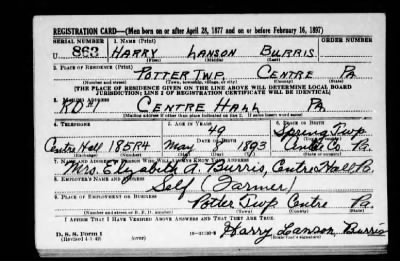 REGISTRATION CARD—(Men born on or after April 28, 1877 and on or before February 16, 1897)
SERIAL NUMBER 1. NAME (Print) ORDER NUMBER
U 863 HARRY LANSON BURRIS
(First) (Middle) (Last)
2. PLACE OF RESIDENCE (Print)
POTTER TWP. CENTRE PA
(Number and street) (Town, township, village, or city) (County) (State)
[THE PLACE OF RESIDENCE GIVEN ON THE LINE ABOVE WILL DETERMINE LOCAL BOARD
JURISDICTION; LINE 2 OF REGISTRATION CERTIFICATE WILL BE IDENTICAL]
3. MAILING ADDRESS
RD #1 CENTRE HALL PA.
[Mailing address if other than place indicated on line 2. If same insert word same]
4. TELEPHONE 5. AGE IN YEARS 6. PLACE OF BIRTH
49 Spring Twp
DATE OF BIRTH
Centre Hall 185R4 May 1893 Centre Co. Pa.
(Exchange) (Number) (Mo.) (Day) (Yr.) (State or country)
7. NAME AND ADDRESS OF PERSON WHO WILL ALWAYS KNOW YOUR ADDRESS
Mrs. Elizabeth A. Burris, Centre Hall Pa.
8. EMPLOYER'S NAME AND ADDRESS
Self (Farmer)
9. PLACE OF EMPLOYMENT OR BUSINESS
Potter Twp Centre Pa.
(Number and street or R. F. D. number) (Town) (County) (State)
I AFFIRM THAT I HAVE VERIFIED ABOVE ANSWERS AND THAT THEY ARE TRUE.
D. S. S. Form 1
(Revised 4-1-42) (over) Harry Lanson Burris
(Registrant's signature)